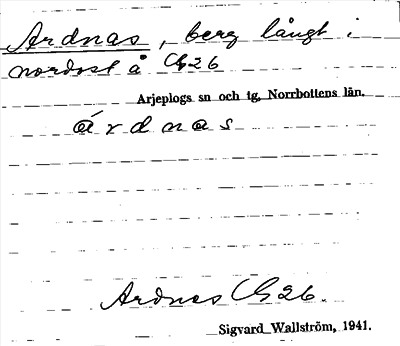 Ardnas, berg långt i
nordost å Gb26
Arjeplogs sn och tg, Norrbottens län.
árdnas
Ardnas Gb26.
Sigvard Wallström, 1941.